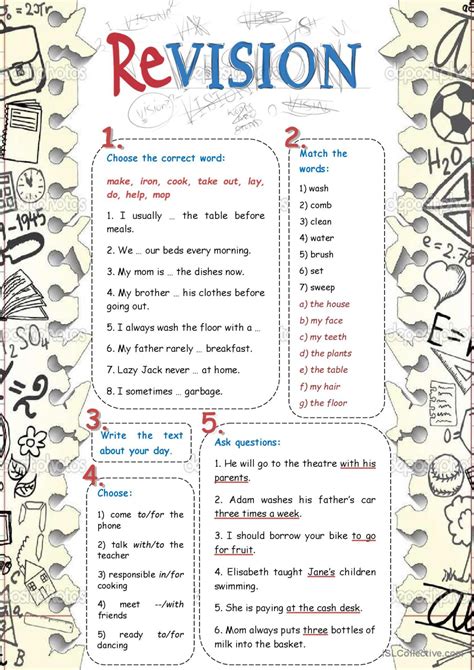 ReVISION
1.
Choose the correct word:
make, iron, cook, take out, lay,
do, help, mop
1. I usually … the table before
meals.
2. We … our beds every morning.
3. My mom is … the dishes now.
4. My brother … his clothes before
going out.
5. I always wash the floor with a …
6. My father rarely … breakfast.
7. Lazy Jack never … at home.
8. I sometimes … garbage.
2.
Match the
words:
1) wash
2) comb
3) clean
4) water
5) brush
6) set
7) sweep
a) the house
b) my face
c) my teeth
d) the plants
e) the table
f) my hair
g) the floor
3.
Write the text
about your day.
4.
Choose:
1) come to/for the
phone
2) talk with/to the
teacher
3) responsible in/for
cooking
4) meet --/with
friends
5) ready to/for
dancing
5.
Ask questions:
1. He will go to the theatre with his
parents.
2. Adam washes his father's car
three times a week.
3. I should borrow your bike to go
for fruit.
4. Elisabeth taught Jane's children
swimming.
5. She is paying at the cash desk.
6. Mom always puts three bottles of
milk into the basket.